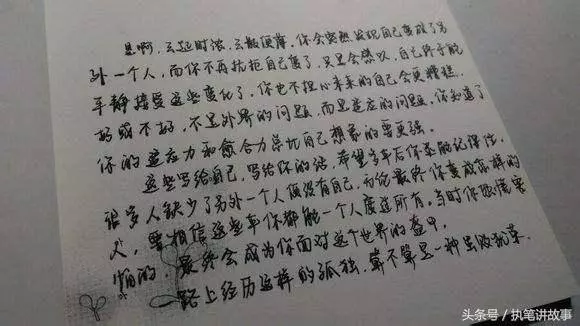 是啊,云起时浓,云散便薄。你会突然发现自己变成了另
外一个人,而你不再抗拒自己变了,只是会感以,自己终于能
平静接受这些变化了。你也不担心未来的自己会更糟糕。
好或不好,不是外界的问题,而是适应的问题。你知道了
你的适应力和愈合力总比自己想象的要更强。
这些写给自己,写给你的话,希望多年后你还能记得住。
很多人缺少了另外一个人便没有自己,无论最终你变成怎样的
人,要相信这些年你都能一个人度过所有。当时你恐慌害
怕的,最终会成为你面对这个世界的盔甲。
一路上经历这样的孤独,算不算是一种虽败犹荣。
头条号 / 执笔讲故事